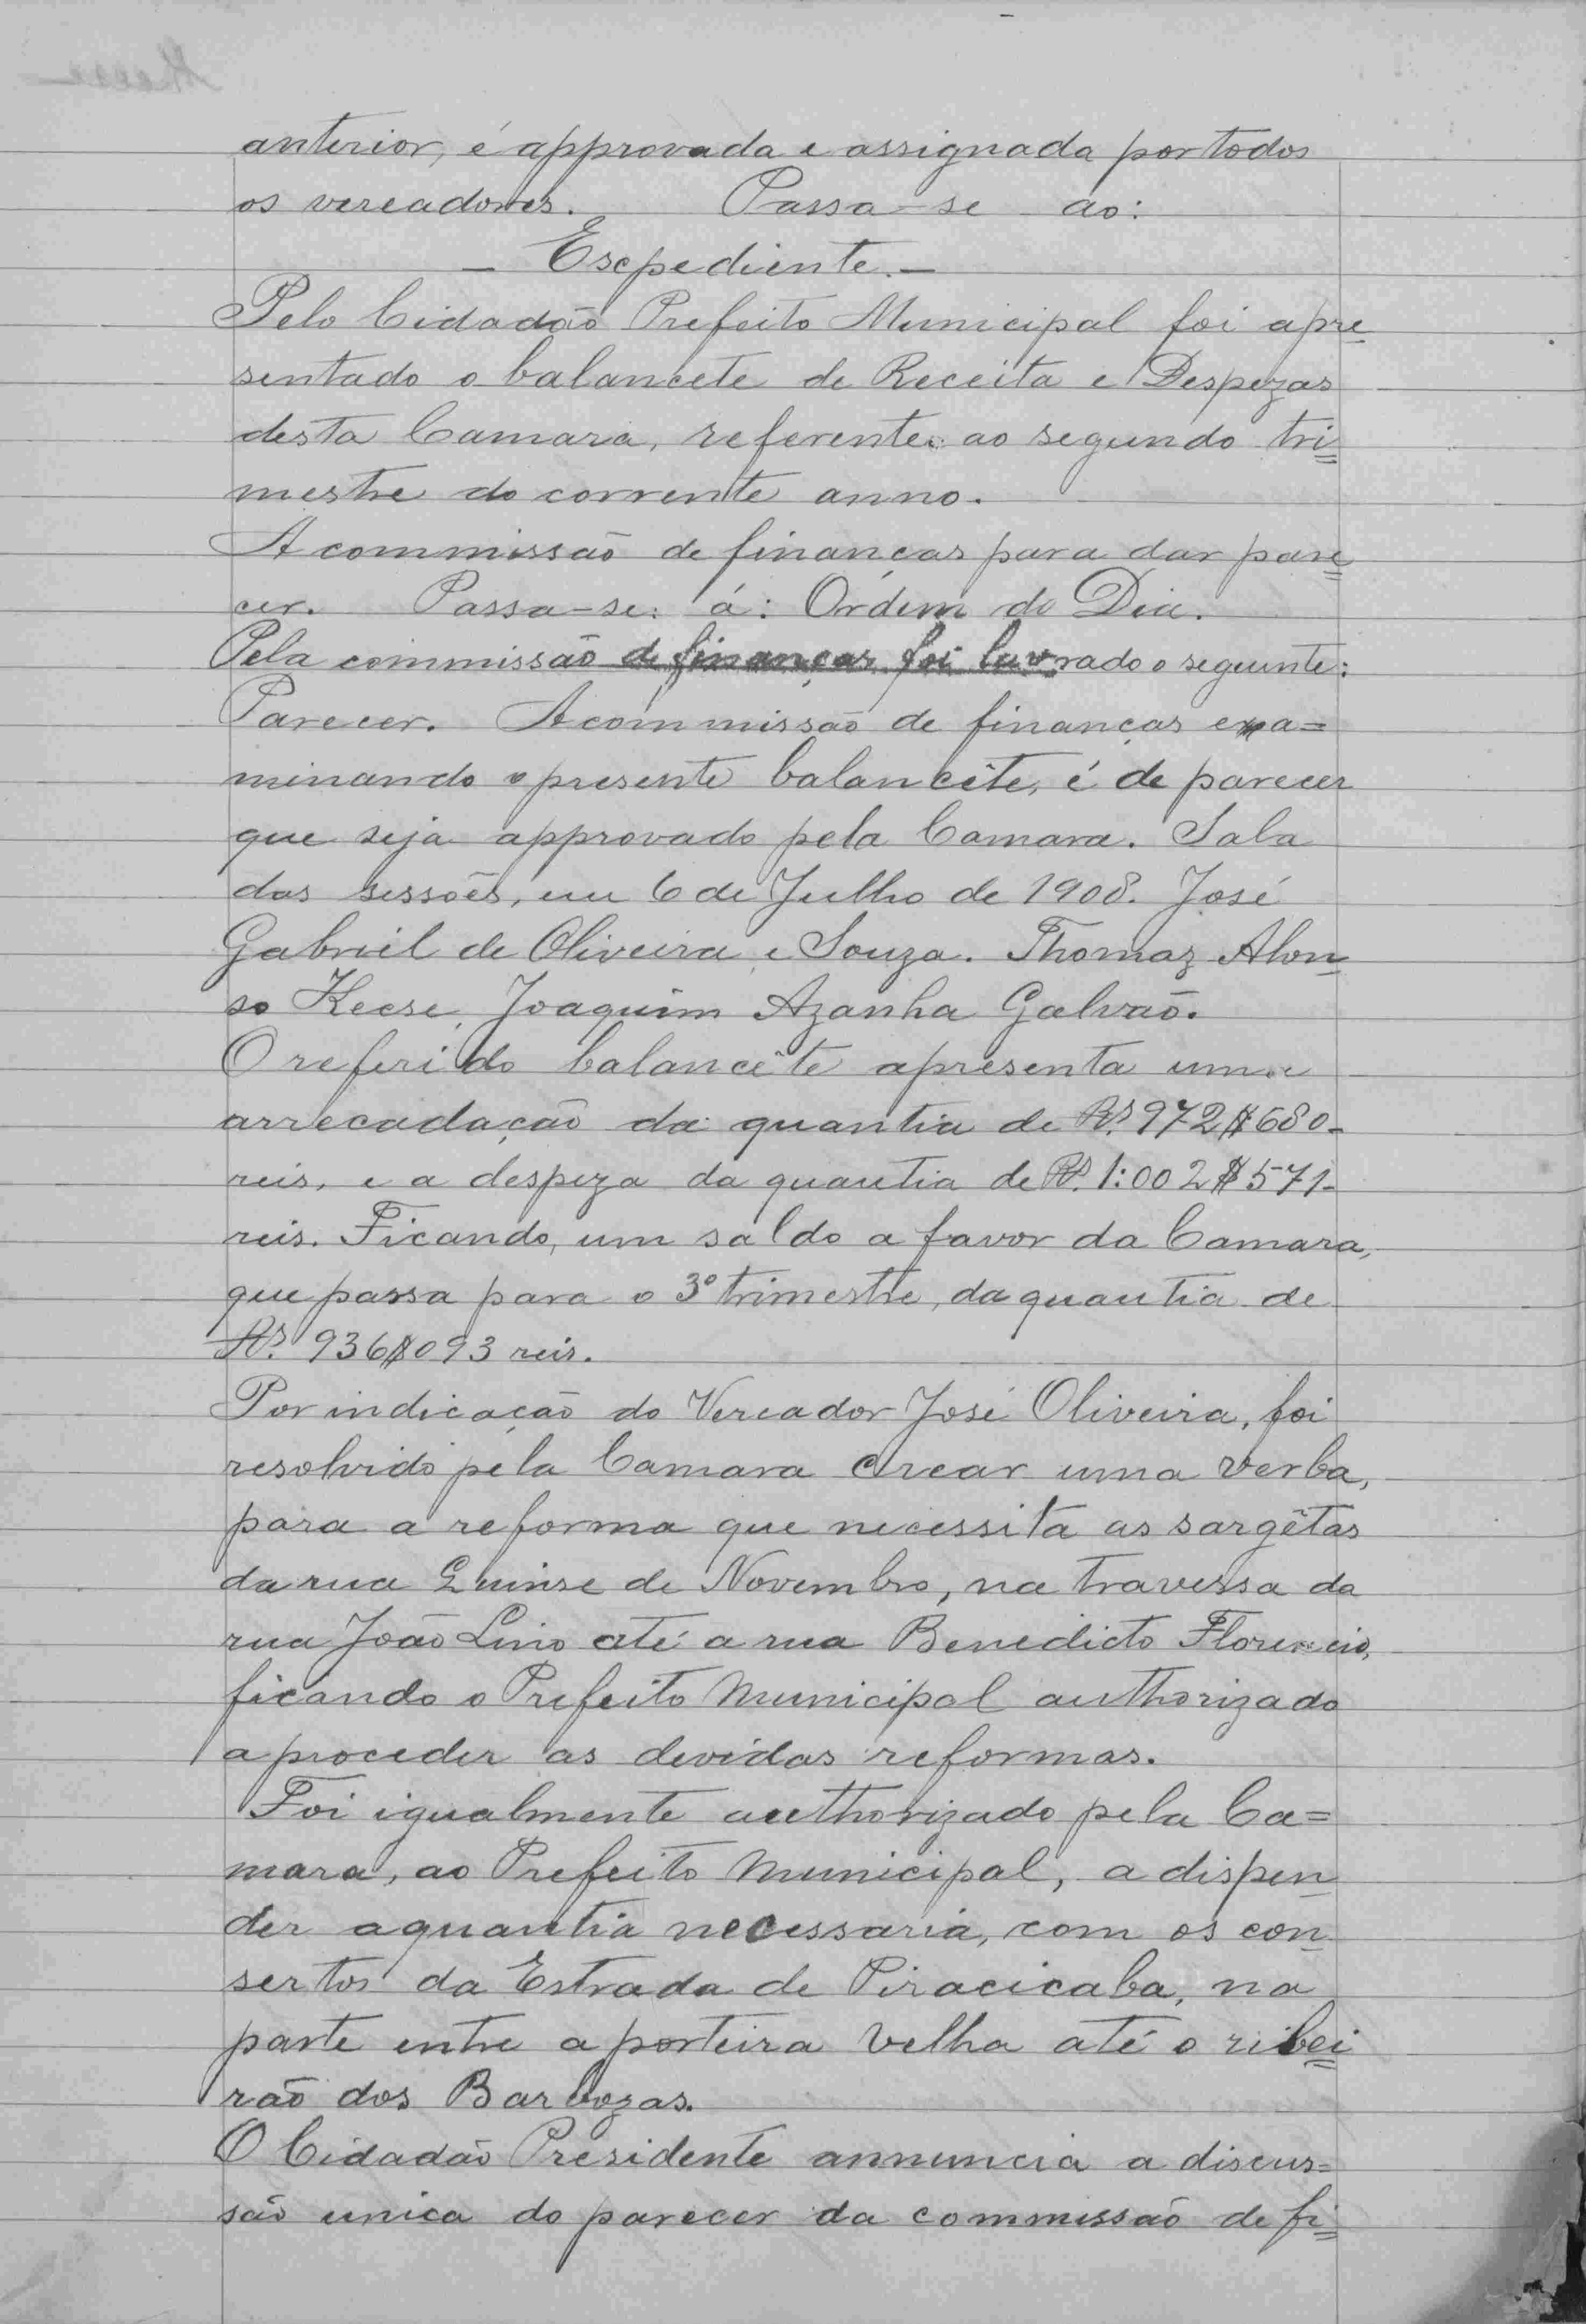 anterior, é approvada e assignada por todos
os vereadores. Passa-se ao:
- Escpediente. -
Pelo Cidadão Prefeito Municipal foi apre
sentado o balancete de Receita e Despezas
desta Camara, referente ao segundo tri=
mestre do corrente anno.
A commissão de finanças para dar pare=
cer. Passa-se: á: Ordem do Dia.
Pela commissão de finanças foi lavrado o seguinte:
Parecer. A commissão de finanças exa=
minando o presente balancête, é de parecer
que seja approvado pela Camara. Sala
das sessões, em 6 de Julho de 1908. José
Gabriel de Oliveira e Souza. Thomaz Alon-
so Keese, Joaquim Azanha Galvão.
O referido balancête apresenta uma
arrecadação da quantia de Rs. 972$680-
reis, e a despeza da quantia de Rs. 1:002$571-
reis. Ficando, um saldo a favor da Camara,
que passa para o 3º trimestre, da quantia de
Rs. 936$093 reis.
Por indicação do Vereador José Oliveira, foi
resolvido pela Camara crear uma verba,
para a reforma que necessita as sargêtas
da rua Quinse de Novembro, na travessa da
rua João Lino até a rua Benedicto Florencio,
ficando o Prefeito Municipal authorizado
a proceder as devidas reformas.
Foi igualmente authorizado pela Ca=
mara, ao Prefeito Municipal, a dispen
der a quantia necessaria, com os con
sertos da Estrada de Piracicaba, na
parte entre a porteira velha até o ribei=
rão dos Barbozas.
O Cidadão Presidente annuncia a discus=
são unica do parecer da commissão de fi=